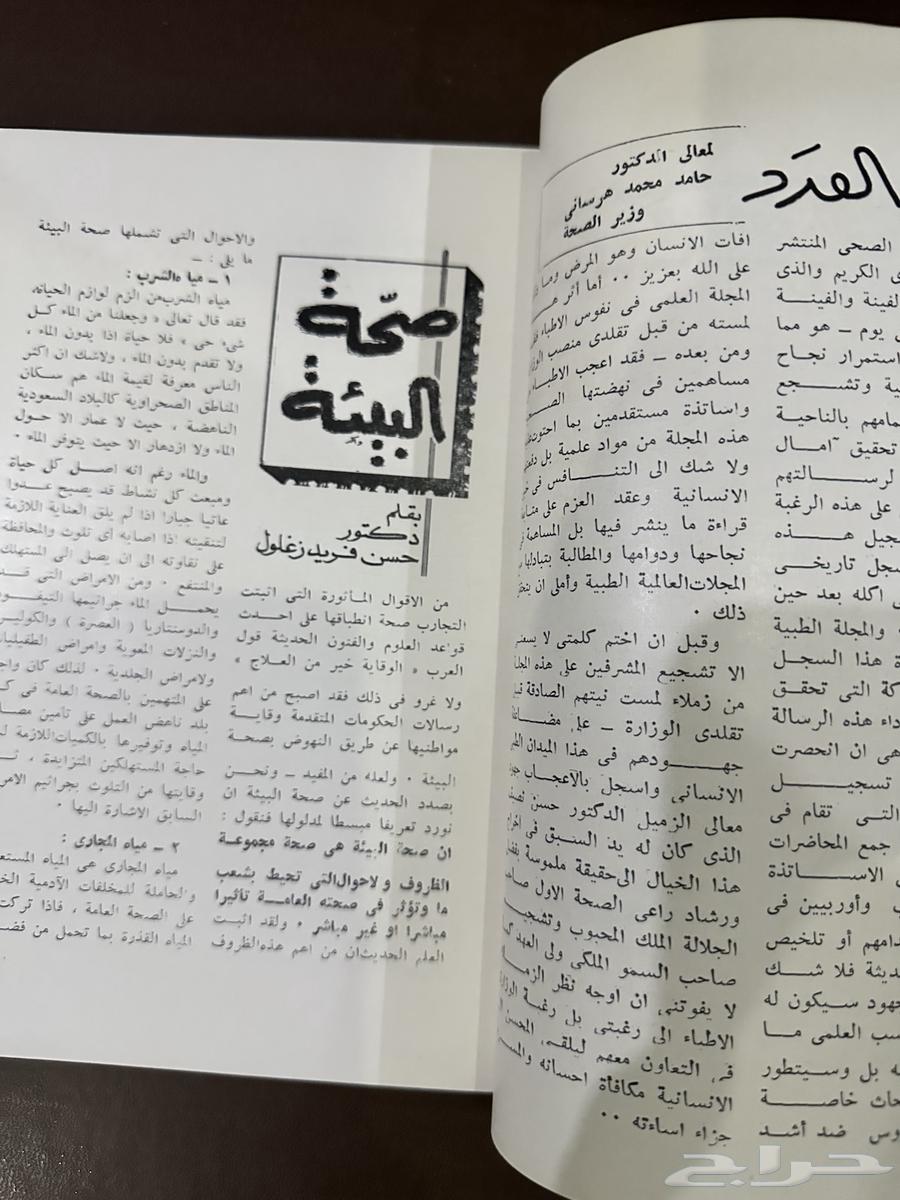 العدد
لمعالى الدكتور
حامد محمد هرسانى
وزير الصحة
الصحى المنتشر
ى الكريم والذى
لفينة والفينة
يوم — هو مما
استمرار نجاح
ية وتشجع
مامهم بالناحية
تحقيق آمال
لرسالتهم
على هذه الرغبة
جيل هذه
سجل تاريخى
ى اكله بعد حين
والمجلة الطبية
ة هذا السجل
كة التى تحقق
داء هذه الرسالة
هى ان انحصرت
تسجيل
التى تقام فى
جمع المحاضرات
الاساتذة
وأوربيين فى
دامهم أو تلخيص
ديثة فلا شك
جهود سيكون له
سب العلمى ما
ه بل وسيتطور
حاث خاصة
وس ضد أشد
افات الانسان وهو المرض وما
على الله بعزيز ٠٠ أما أثر
المجلة العلمى فى نفوس الاطباء
لمسته من قبل تقلدى منصب
ومن بعده — فقد اعجب الاطباء
مساهمين فى نهضتها
واساتذة مستقدمين بما احتوت
هذه المجلة من مواد علمية بل
ولا شك الى التنافس فى
الانسانية وعقد العزم على
قراءة ما ينشر فيها بل المساهمة
نجاحها ودوامها والمطالبة بتبادلها
المجلات العالمية الطبية وأملى ان
ذلك ٠
وقبل ان اختم كلمتى لا يسعنى
الا تشجيع المشرفين على هذه المجلة
من زملاء لمست نيتهم الصادقة
تقلدى الوزارة — على
جهودهم فى هذا الميدان
الانسانى واسجل بالاعجاب
معالى الزميل الدكتور حسن نصيف
الذى كان له يد السبق فى
هذا الخيال الى حقيقة ملموسة
ورشاد راعى الصحة الاول
الجلالة الملك المحبوب وتشجيع
صاحب السمو الملكى ولى العهد
لا يفوتنى ان اوجه نظر
الاطباء الى رغبتى بل رغبة
فى التعاون معهم ليلقى المحسن
الانسانية مكافأة احسانه
جزاء اساءته ٠٠
صحّة
البيئة
بقلم
دكتور
حسن فريد زغلول
من الاقوال المأثورة التى اثبتت
التجارب صحة انطباقها على احدث
قواعد العلوم والفنون الحديثة قول
العرب « الوقاية خير من العلاج »
ولا غرو فى ذلك فقد اصبح من اهم
رسالات الحكومات المتقدمة وقاية
مواطنيها عن طريق النهوض بصحة
البيئة ٠ ولعله من المفيد — ونحن
بصدد الحديث عن صحة البيئة ان
نورد تعريفا مبسطا لمدلولها فنقول :
ان صحة البيئة هى صحة مجموعة
الظروف والاحوال التى تحيط بشعب
ما وتؤثر فى صحته العامة تأثيرا
مباشرا او غير مباشر ٠ ولقد اثبت
العلم الحديث ان من اهم هذه الظروف
والاحوال التى تشملها صحة البيئة
ما يلى : —
١ — مياه الشرب :
مياه الشرب من الزم لوازم الحياة،
فقد قال تعالى « وجعلنا من الماء كل
شىء حى » فلا حياة اذا بدون الماء ،
ولا تقدم بدون الماء ، ولاشك ان اكثر
الناس معرفة لقيمة الماء هم سكان
المناطق الصحراوية كالبلاد السعودية
الناهضة ، حيث لا عمار الا حول
الماء ولا ازدهار الا حيث يتوفر الماء ٠
والماء رغم انه اصل كل حياة
ومبعث كل نشاط قد يصبح عدوا
عاتيا جبارا اذا لم يلق العناية اللازمة
لتنقيته اذا اصابه اى تلوث والمحافظة
على نقاوته الى ان يصل الى المستهلك
والمنتفع ٠ ومن الامراض التى
يحمل الماء جراثيمها
والدوسنتاريا ( العصرة )
والنزلات المعوية وامراض
والامراض الجلدية ٠ لذلك كان
على المتهمين بالصحة العامة فى
بلد ناهض العمل على تأمين
المياه وتوفيرها بالكميات اللازمة
حاجة المستهلكين المتزايدة ،
وقايتها من التلوث بجراثيم
السابق الاشارة اليها ٠
٢ — مياه المجارى :
مياه المجارى هى المياه
والحاملة للمخلفات الآدمية
على الصحة العامة ، فاذا تركت
المياه القذرة بما تحمل من
حراج